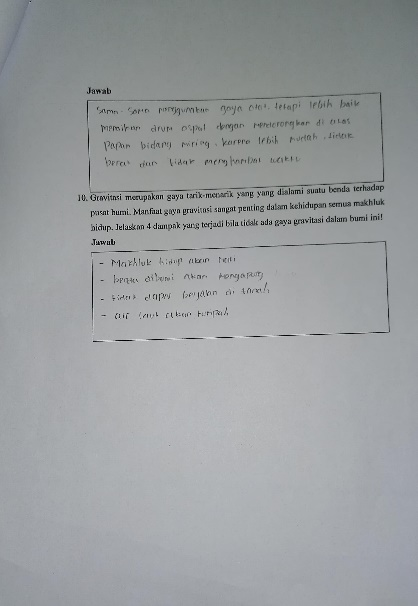 Jawab
Sama-Sama menggunakan gaya otot, tetapi lebih baik
memilih drum aspal dengan mendorongkan di atas
Papan bidang miring, karena lebih mudah, tidak
berat dan tidak menghambat waktu
10. Gravitasi merupakan gaya tarik-menarik yang yang dialami suatu benda terhadap
pusat bumi. Manfaat gaya gravitasi sangat penting dalam kehidupan semua makhluk
hidup. Jelaskan 4 dampak yang terjadi bila tidak ada gaya gravitasi dalam bumi ini!
Jawab
- Makhluk hidup akan
- benda dibumi akan mengapung
- tidak dapat berjalan di tanah
- air laut akan tumpah